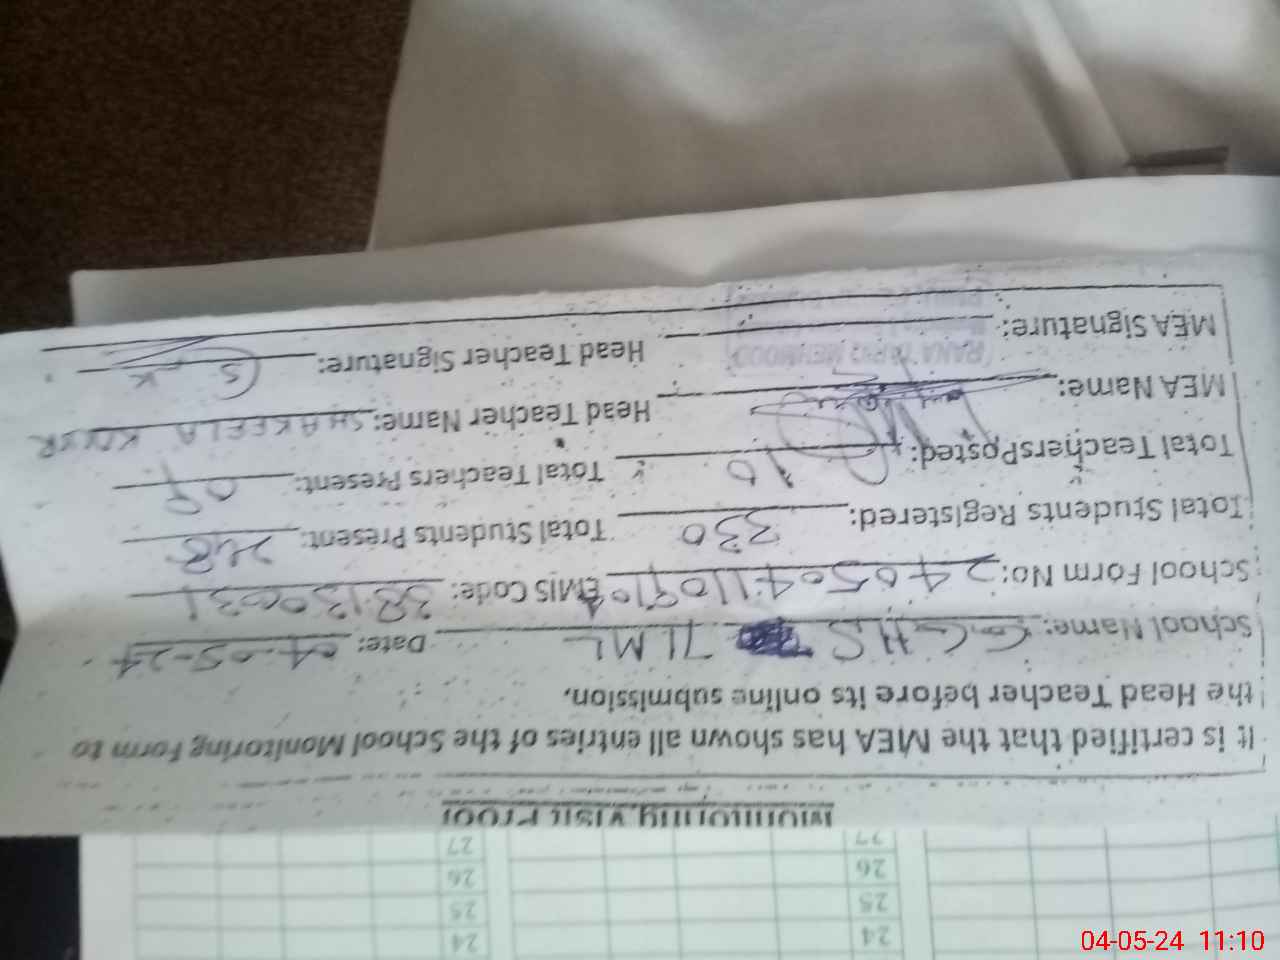 Monitoring Visit Proof
It is certified that the MEA has shown all entries of the School Monitoring Form to
the Head Teacher before its online submission.
School Name: G.G.H.S 7LML Date: 04-05-24
School Form No: EMIS Code: 38130031
Total Students Registered: 330 Total Students Present: 248
Total Teachers Posted: 10 Total Teachers Present: 09
MEA Name: Head Teacher Name: SHAKEELA KOUSR
MEA Signature: Head Teacher Signature:
RANA TARIQ MEHMOOD
27 27
26 26
25 25
24 24
04-05-24 11:10